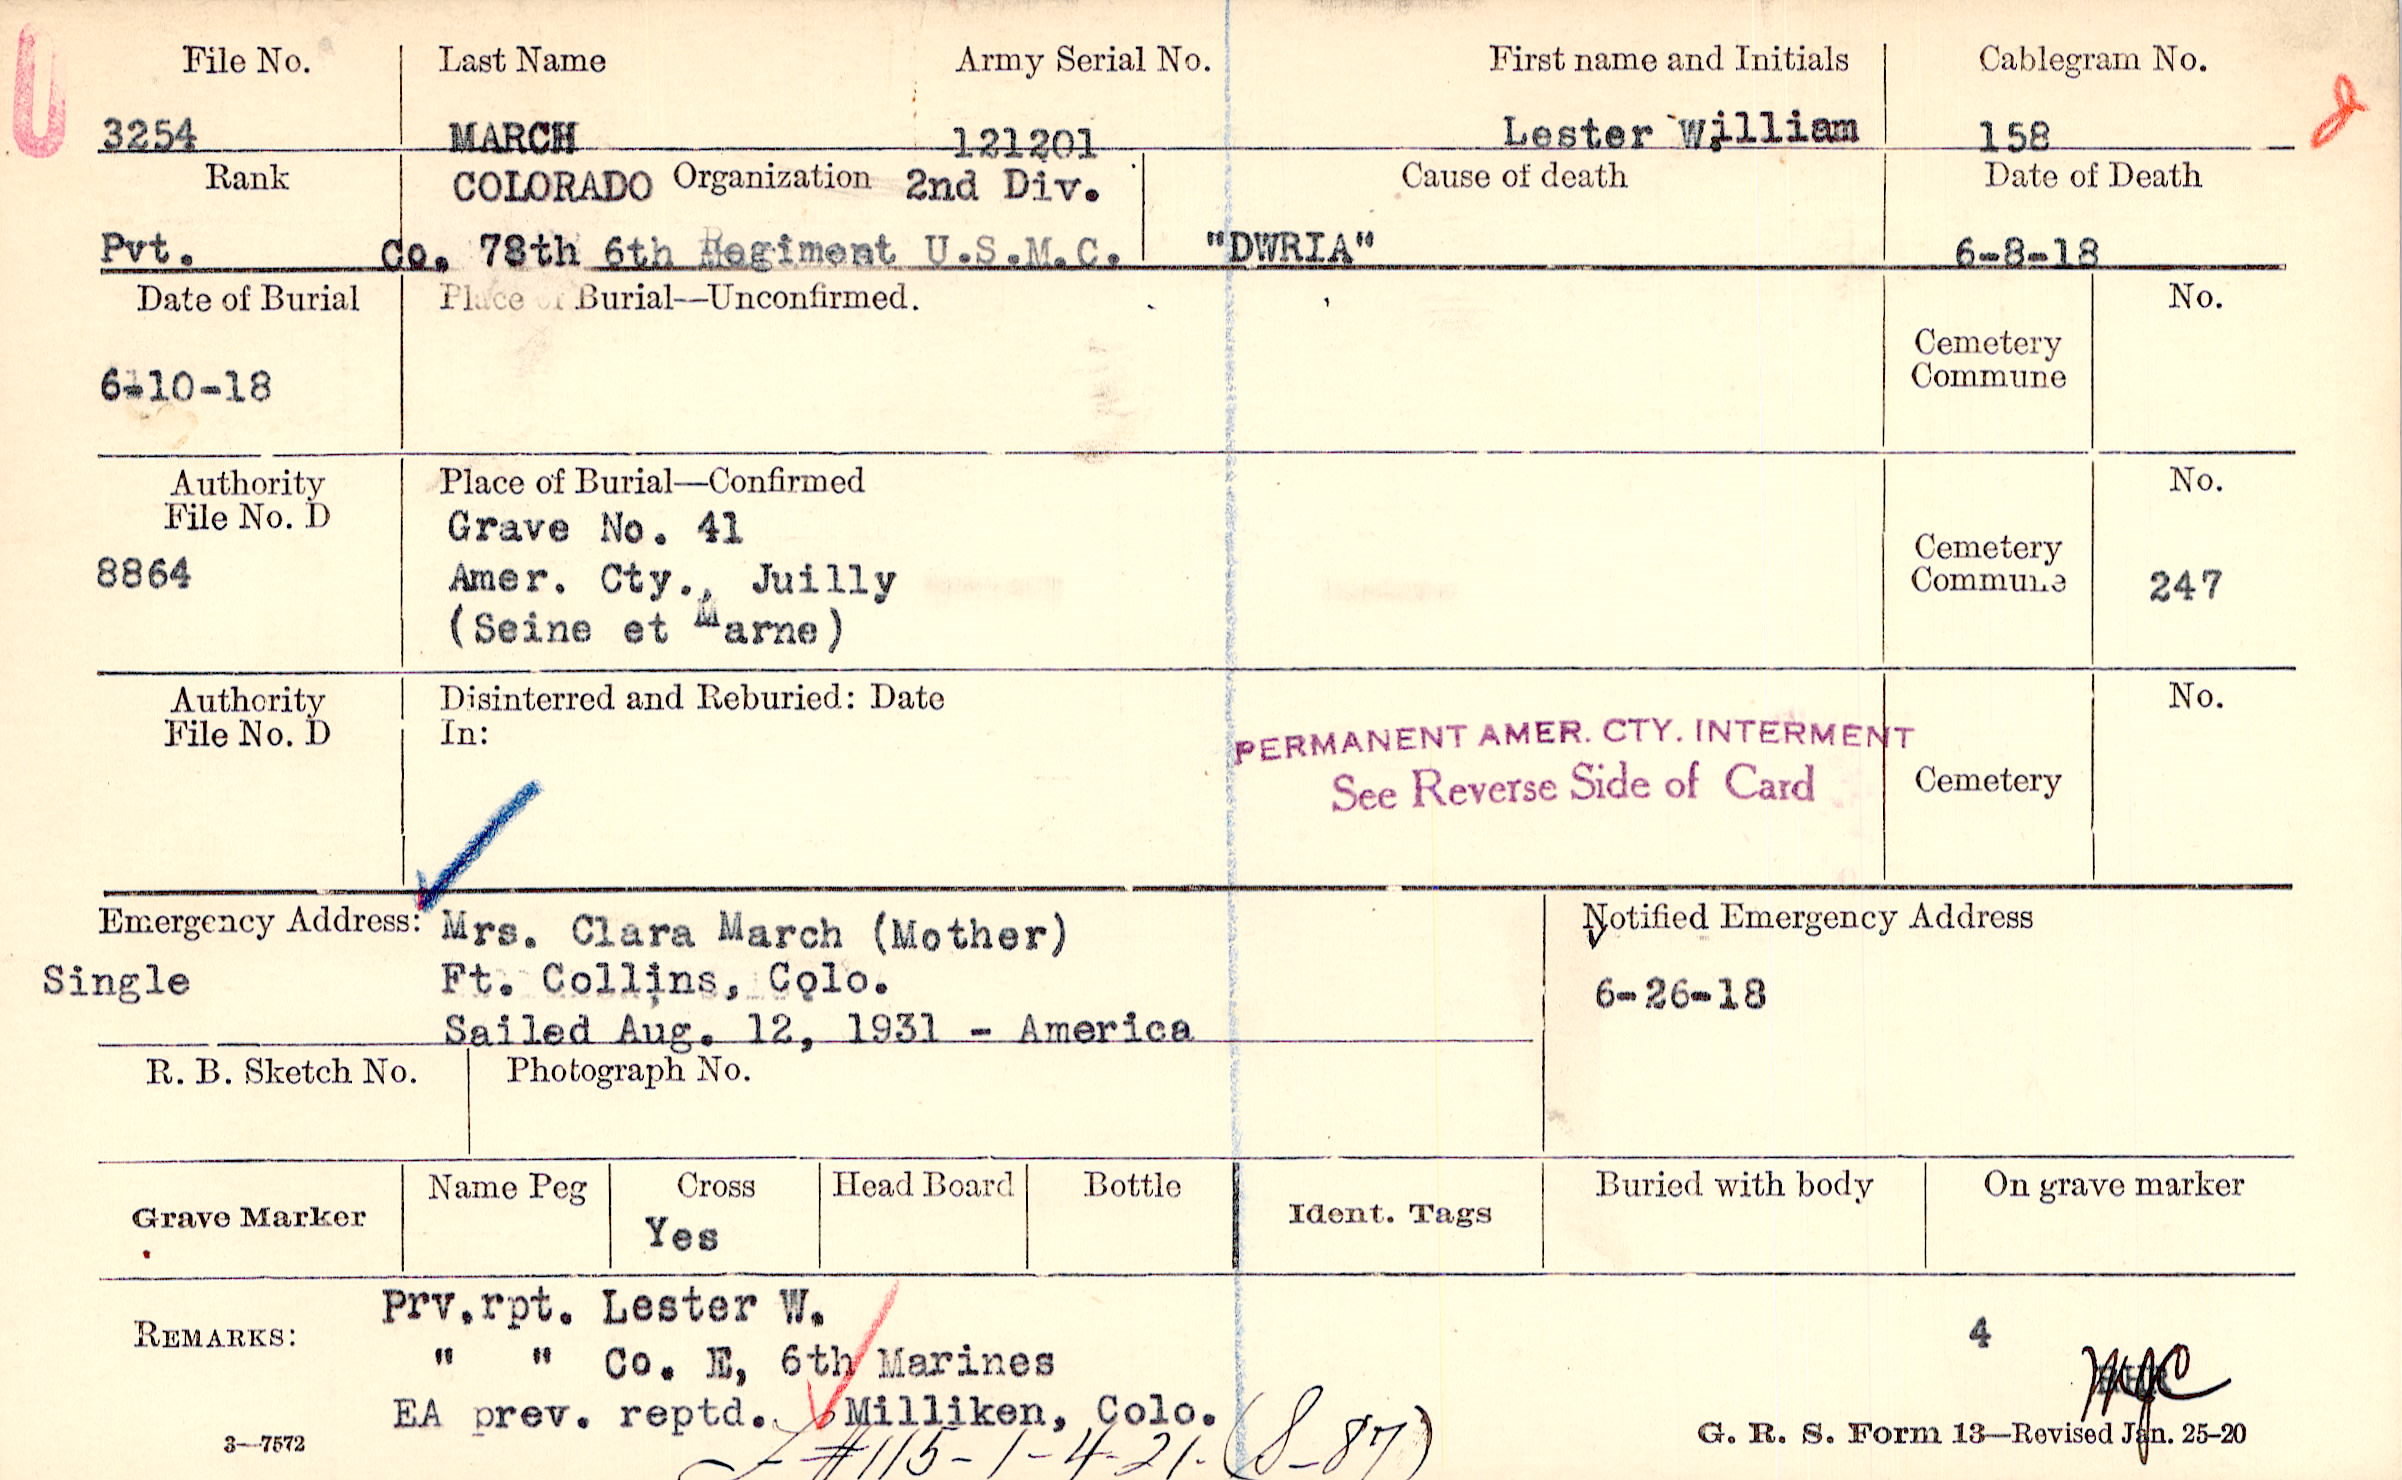 File No. Last Name Army Serial No. First name and Initials Cablegram No.
3254 MARCH 121201 Lester William 158
Rank COLORADO Organization 2nd Div. Cause of death Date of Death
Pvt. Co. 78th 6th Regiment U.S.M.C. "DWRIA" 6-8-18
Date of Burial Place of Burial—Unconfirmed. No.
Cemetery
Commune
6-10-18
Authority Place of Burial—Confirmed No.
File No. D Grave No. 41
Cemetery
8864 Amer. Cty., Juilly Commune 247
(Seine et Marne)
Authority Disinterred and Reburied: Date No.
File No. D In:
PERMANENT AMER. CTY. INTERMENT
See Reverse Side of Card Cemetery
Emergency Address: Mrs. Clara March (Mother) Notified Emergency Address
Single Ft. Collins, Colo. 6-26-18
Sailed Aug. 12, 1931 - America
R. B. Sketch No. Photograph No.
Grave Marker Name Peg Cross Head Board Bottle Ident. Tags Buried with body On grave marker
Yes
REMARKS: Prv.rpt. Lester W. 4
" " Co. E, 6th Marines
EA prev. reptd. Milliken, Colo.
#115-1-4-21. (S-87)
3—7572 G. R. S. Form 13—Revised Jan. 25-20